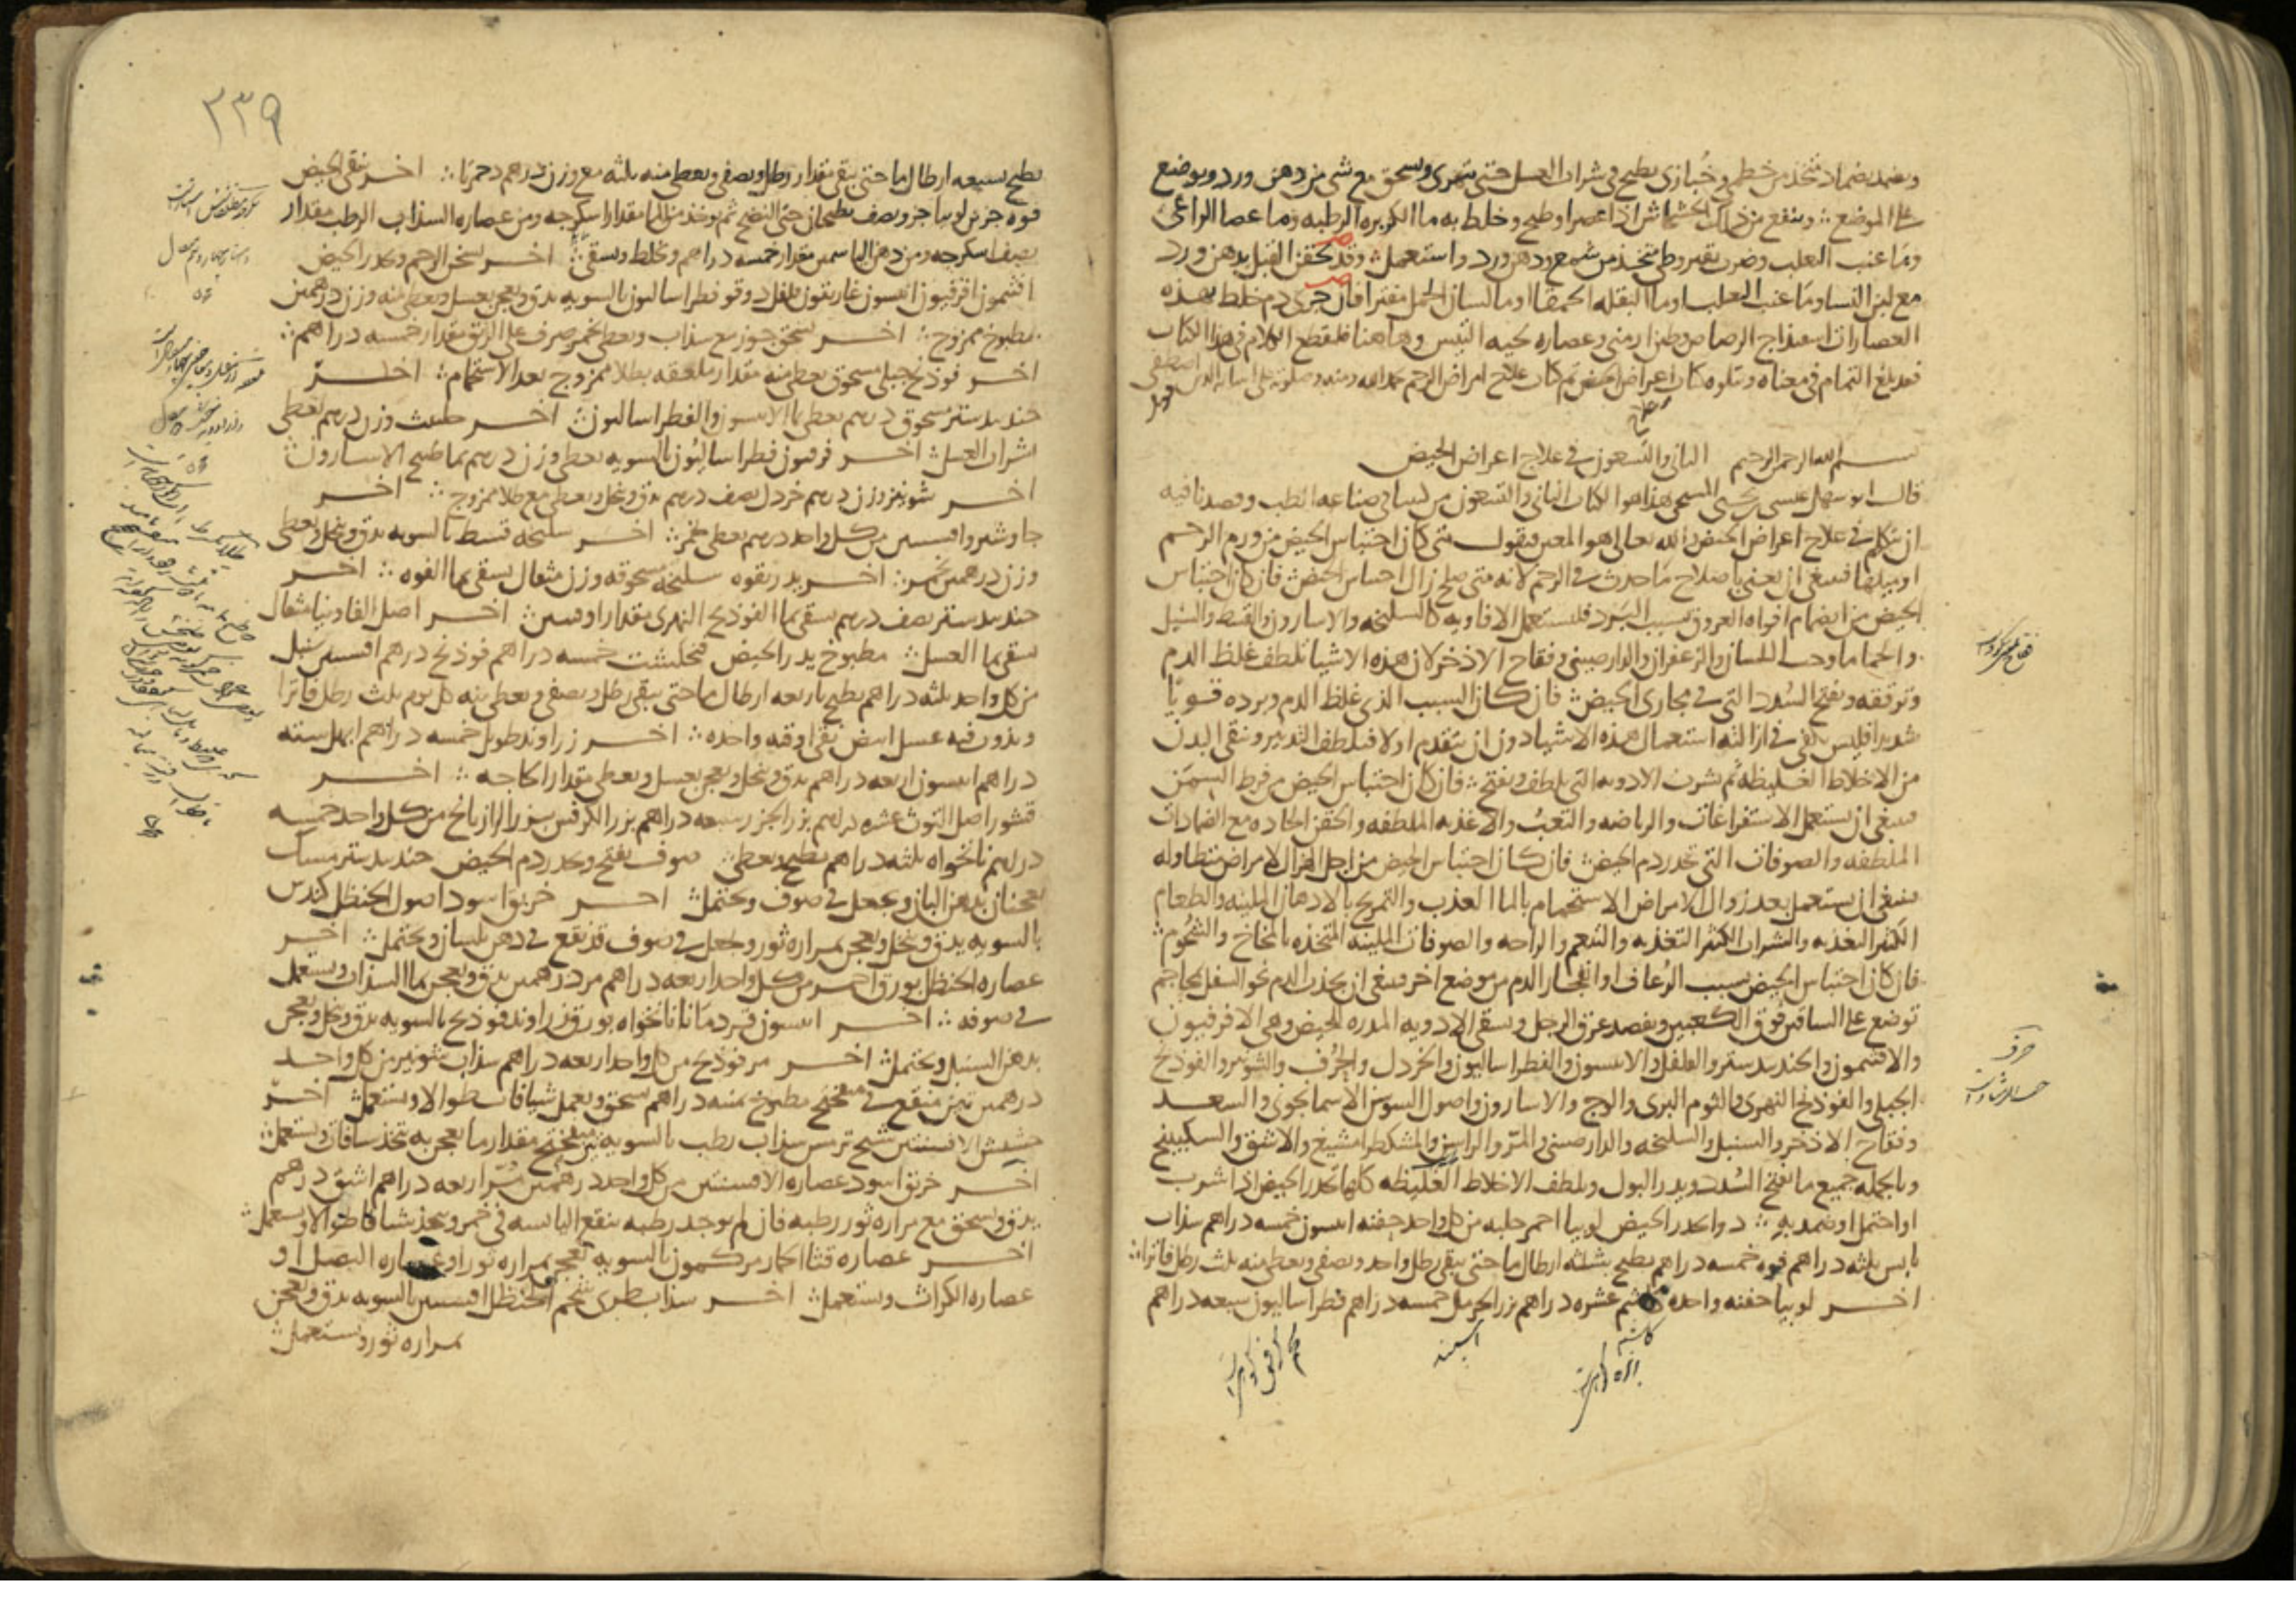 ويضمد بضماد متخذ من خطمى وخُبازى يطبخ فى شراب العسل حتى يتهرى ويسحق مع شى من دهن ورد ويوضع
على الموضع وينفع من ذلك الخشخاش اذا عصر او طبخ وخلط به ما الكزبره الرطبه وما عصا الراعى
وما عنب الثعلب وضرب بقيروطى متخذ من شمع ودهن ورد واستعمل وقد يحقن القبل بدهن ورد
مع لبن النسا وما عنب الثعلب او ما البقله الحمقا او ما لسان الحمل مفترا فان جرى دم خلط بهذه
العصارات اسفيداج الرصاص وطين ارمنى وعصاره لحيه التيس وهاهنا فلنقطع الكلام فى هذا الكتاب
فقد بلغ التمام فى معناه ويتلوه كتاب اعراض الحيض تم كتاب علاج امراض الرحم بحمد الله ومنه
بسم الله الرحمن الرحيم الثانى والتسعون فى علاج اعراض الحيض
قال ابو سهل عيسى بن يحيى المسيحى هذا هو الكتاب الثانى والتسعون من كتبنا فى صناعه الطب وقصدنا فيه
ان نتكلم فى علاج اعراض الحيض والله تعالى هو المعين فنقول متى كان احتباس الحيض من ورم الرحم
او ميلها فينبغى ان يعنى باصلاح ما حدث فى الرحم لانه متى صلح زال احتباس الحيض فان كان احتباس
الحيض من انضمام افواه العروق بسبب البرد فليستعمل الافاويه كالسليخه والاسارون والقسط والسنبل
والحماما وحب البلسان والزعفران والدارصينى وفقاح الاذخر لان هذه الاشيا تلطف غلظ الدم
وترققه وتفتح السُدد التى فى مجارى الحيض فان كان السبب الذى غلظ الدم وبرده قويًا
شديدا فليس يكفى فى ازالته استعمال هذه الاشيا دون ان يتقدم اولا فيلطف التدبير وينقى البدن
من الاخلاط الغليظه ثم شرب الادويه التى تلطف وتفتح فان كان احتباس الحيض من فرط السمن
فينبغى ان يستعمل الاستفراغات والرياضه والتعب والاغذيه الملطفه والحقن الحاده مع الضمادات
الملطفه والصوفات التى تدر دم الحيض فان كان احتباس الحيض من اجل الهزال لامراض متطاوله
فينبغى ان يستعمل بعد زوال الامراض الاستحمام بالما العذب والتمريخ بالادهان الملينه والطعام
الكثير التغذيه والشراب الكثير التغذيه والتنعم والراحه والصوفات الملينه المتخذه بالمخاخ والشحوم
فان كان احتباس الحيض بسبب الرُعاف او انفجار الدم من موضع اخر فينبغى ان يجذب الدم نحو السفل بمحاجم
توضع على الساقين فوق الكعبين وبفصد عرق الرجل وبسقى الادويه المدره للحيض وهى الافربيون
والافتيمون والجندبيدستر والفلفل والانيسون والفطراساليون والخردل والحُرف والشونيز والفوذنج
الجبلى والفوذنج النهرى والثوم البرى والوج والاسارون واصول السوسن الاسمانجونى والسعد
وفقاح الاذخر والسنبل والسليخه والدارصينى والمرّ والراسن والمشكطرامشيغ والاشق والسكبينج
وبالجمله جميع ما يفتح السُدد ويدر البول ويلطف الاخلاط الغليظه كلها تدر الحيض اذا شرب
او احتمل او ضمد به دوا يدر الحيض لوبيا احمر حلبه من كل واحد حفنه انيسون خمسه دراهم سذاب
يابس ثلثه دراهم فوه خمسه دراهم يطبخ بثلثه ارطال ما حتى يبقى رطل واحد ويصفى ويعطى منه ثلث رطل فاترا
اخر لوبيا حفنه واحده كاشم عشره دراهم بزر الحرمل خمسه دراهم فطراساليون سبعه دراهم
٣٣٩
يطبخ بسبعه ارطال ما حتى يبقى مقدار رطل ويصفى ويعطى منه ثلثه مع وزن درهم دحمرثا اخر ينقى الحيض
فوه جزين لوبيا جزو نصف يطبخان حتى النضج ثم يوخذ من الما مقدار اسكرجه ومن عصاره السذاب الرطب مقدار
نصف اسكرجه ومن دهن الياسمين مقدار خمسه دراهم ويخلط ويسقى اخر يسخن الرحم ويدر الحيض
افتيمون افربيون انيسون غاريقون فلفل دوقو فطراساليون بالسويه يدق ويعجن بعسل ويعطى منه وزن درهمين
بمطبوخ ممزوج اخر يسحق جوز مع سذاب ويعطى بخمر صرف على الريق مقدار خمسه دراهم
اخر فوذنج جبلى مسحوق يعطى منه مقدار ملعقه بطلا ممزوج بعد الاستحمام اخر
جندبيدستر مسحوق درهم يعطى بما الانيسون والفطراساليون اخر حلتيت وزن درهم يعطى
بشراب العسل اخر فربيون فطراساليون بالسويه يعطى وزن درهم بما طبيخ الاسارون
اخر شونيز وزن درهم خردل نصف درهم يدق وينخل ويعطى مع طلا ممزوج اخر
جاوشير وافسنتين من كل واحد درهم يعطى بخمر اخر سليخه قسط بالسويه يدق وينخل ويعطى
وزن درهمين بخمر اخر يدر بقوه سليخه مسحوقه وزن مثقال يسقى بما الفوه اخر
جندبيدستر نصف درهم يسقى بما الفوذنج النهرى مقدار اوقيتين اخر اصل الفاونيا مثقال
يسقى بما العسل مطبوخ يدر الحيض فنجنكشت خمسه دراهم فوذنج درهم افسنتين سنبل
من كل واحد ثلثه دراهم يطبخ باربعه ارطال ما حتى يبقى رطل ويصفى ويعطى منه كل يوم ثلث رطل فاترا
ويذوب فيه عسل ابيض نقى اوقيه واحده اخر زراوند طويل خمسه دراهم ابهل سته
دراهم انيسون اربعه دراهم يدق وينخل ويعجن بعسل ويعطى مقدار الحاجه اخر
قشور اصل التوث عشره دراهم بزر الجزر سبعه دراهم بزر الكرفس بزر الرازيانج من كل واحد خمسه
دراهم نانخواه ثلثه دراهم يطبخ ويعطى صوف يفتح ويدر دم الحيض جندبيدستر مسك
يعجنان بدهن البان ويجعل فى صوف ويحتمل اخر خربق اسود اصول الحنظل كندس
بالسويه يدق وينخل ويعجن بمراره ثور ويجعل فى صوف قد نقع فى دهن بلسان ويحتمل اخر
عصاره الحنظل بورق احمر من كل واحد اربعه دراهم مر درهمين يدق ويعجن بما السذاب ويستعمل
فى صوفه اخر انيسون قردمانا نانخواه بورق زراوند فوذنج بالسويه يدق وينخل ويعجن
بدهن السنبل ويحتمل اخر مر فوذنج من كل واحد اربعه دراهم سذاب شونيز من كل واحد
درهمين تين منقع فى ميفختج مطبوخ ثمنيه دراهم يسحق ويعمل شيافات طوالا ويستعمل اخر
حشيش الافسنتين شيح ترمس سذاب رطب بالسويه ميفختج مقدار ما يعجن به يتخذ شيافات ويستعمل
اخر خربق اسود عصاره الافسنتين من كل واحد درهمين مرّ اربعه دراهم اشق درهم
يدق ويسحق مع مراره ثور رطبه فان لم توجد رطبه ينقع اليابسه فى خمر ويتخذ شيافا طوالا ويستعمل
اخر عصاره قثا الحمار مر كمون بالسويه يعجن بمراره ثور او عصاره البصل او
عصاره الكراث ويستعمل اخر سذاب طرى شحم الحنظل افسنتين بالسويه يدق ويعجن
بمراره ثور ويستعمل